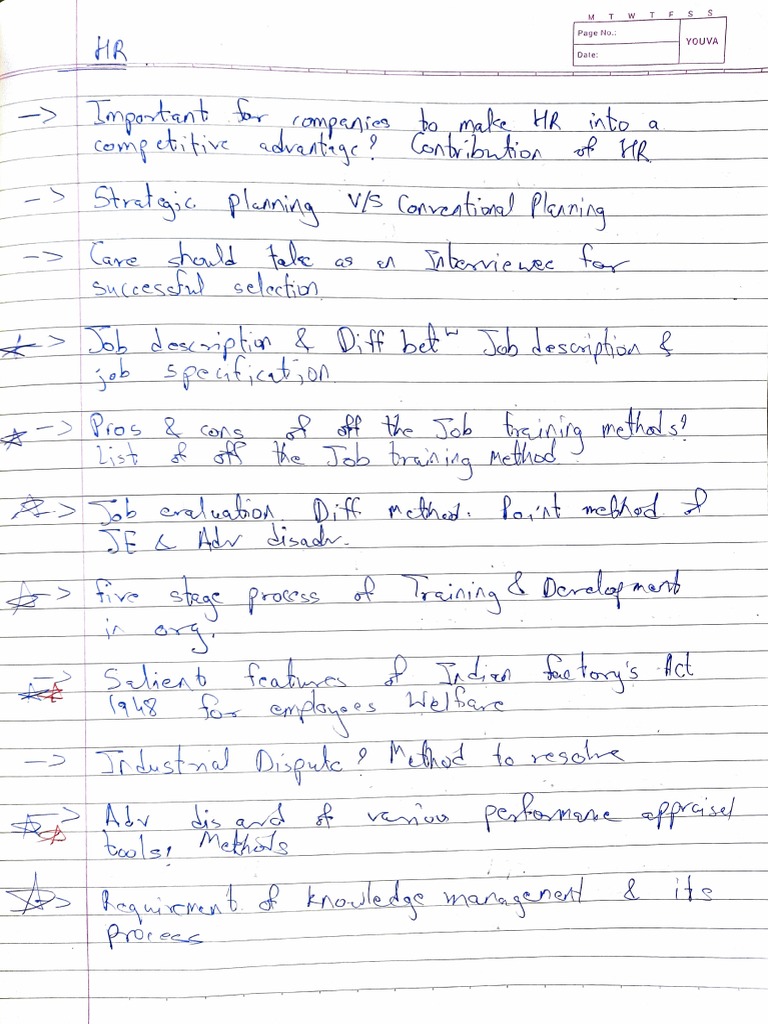 M T W T F S S
Page No.:
YOUVA
Date:
HR
-> Important for companies to make HR into a
competitive advantage? Contribution of HR
-> Strategic planning V/S Conventional Planning
-> Care should take as an Interviewee for
successful selection
-> Job description & Diff betn Job description &
job specification.
-> Pros & cons of off the Job training methods?
List of off the Job training method
-> Job evaluation Diff method. Point method of
JE & Adv disadv.
-> five stage process of Training & Development
in org.
-> Salient features of Indian factory's Act
1948 for employees Welfare
-> Industrial Dispute? Method to resolve
-> Adv dis and of various performane appraisel
tools, Methods
-> Requirement of knowledge management & its
process